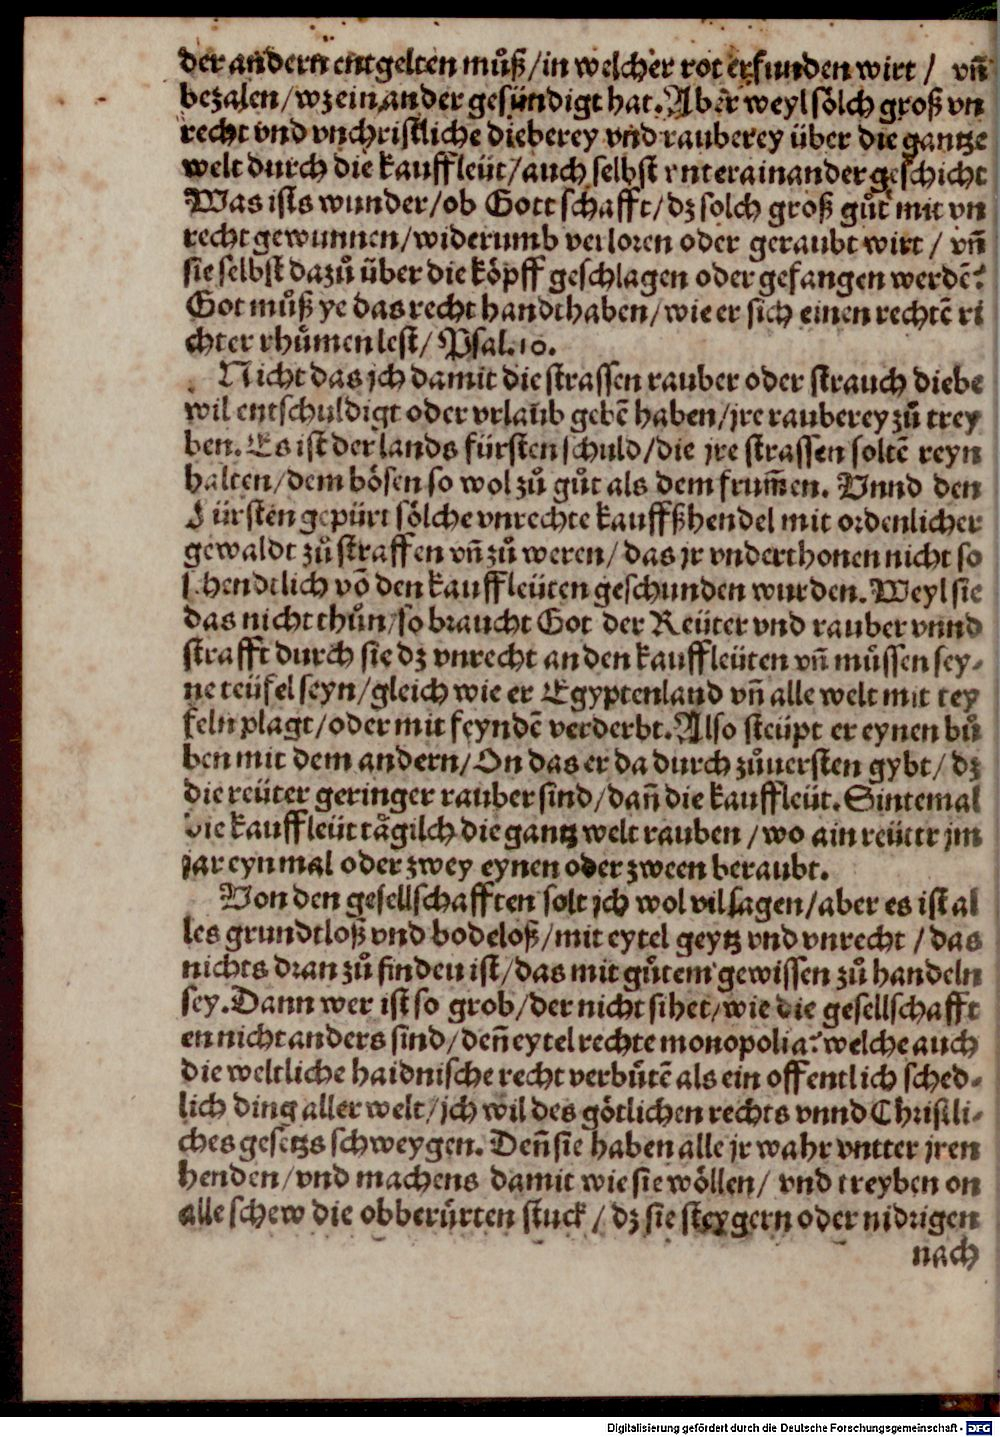 der andern entgelten můß/in welcher rot erfunden wirt / vñ
bezalen/wz ein ander gesündigt hat. Aber weyl sölch groß vn
recht vnd vnchristliche dieberey vnd rauberey über die gantze
welt durch die kauffleüt/auch selbst vnterainander geschicht
Was ists wunder/ob Gott schafft/dz solch groß gůt mit vn
recht gewunnen/widerumb verloren oder geraubt wirt / vñ
sie selbst dazů über die köpff geschlagen oder gefangen werdē?
Got můß ye das recht handthaben/wie er sich einen rechtē ri
chter rhůmen lest/Psal.10.
Nicht das jch damit die strassen rauber oder strauch diebe
wil entschuldigt oder vrlaub gebē haben/jre rauberey zů trey
ben. Es ist der lands fürsten schuld/die jre strassen soltē reyn
halten/dem bösen so wol zů gůt als dem frum̄en. Vnnd den
Fürsten gepürt sölche vnrechte kauffßhendel mit ordenlicher
gewaldt zů straffen vñ zů weren/das jr vnderthonen nicht so
schendtlich vō den kauffleüten geschunden wurden. Weyl sie
das nicht thůn/so braucht Got der Reüter vnd rauber vnnd
strafft durch sie dz vnrecht an den kauffleüten vñ müssen sey-
ne teüfel seyn/gleich wie er Egyptenland vñ alle welt mit tey
feln plagt/oder mit feyndē verderbt. Also steüpt er eynen bů
ben mit dem andern/On das er da durch zůuersten gybt/dz
die reüter geringer rauber sind/dañ die kauffleüt. Sintemal
die kauffleüt tägilch die gantz welt rauben/wo ain reütter jm
jar eyn mal oder zwey eynen oder zween beraubt.
Von den gesellschafften solt jch wol vil sagen/aber es ist al
les grundtloß vnd bodeloß/mit eytel geytz vnd vnrecht / das
nichts dran zů finden ist/das mit gůtem gewissen zů handeln
sey. Dann wer ist so grob/der nicht sihet/wie die gesellschafft
en nicht anders sind/deñ eytel rechte monopolia? welche auch
die weltliche haidnische recht verbütē als ein offentlich sched-
lich ding aller welt/jch wil des götlichen rechts vnnd Christli-
ches gesetzs schweygen. Deñ sie haben alle jr wahr vntter jren
henden/vnd machens damit wie sie wöllen/ vnd treyben on
alle schew die obberürten stuck/dz sie steygern oder nidrigen
nach
Digitalisierung gefördert durch die Deutsche Forschungsgemeinschaft - DFG